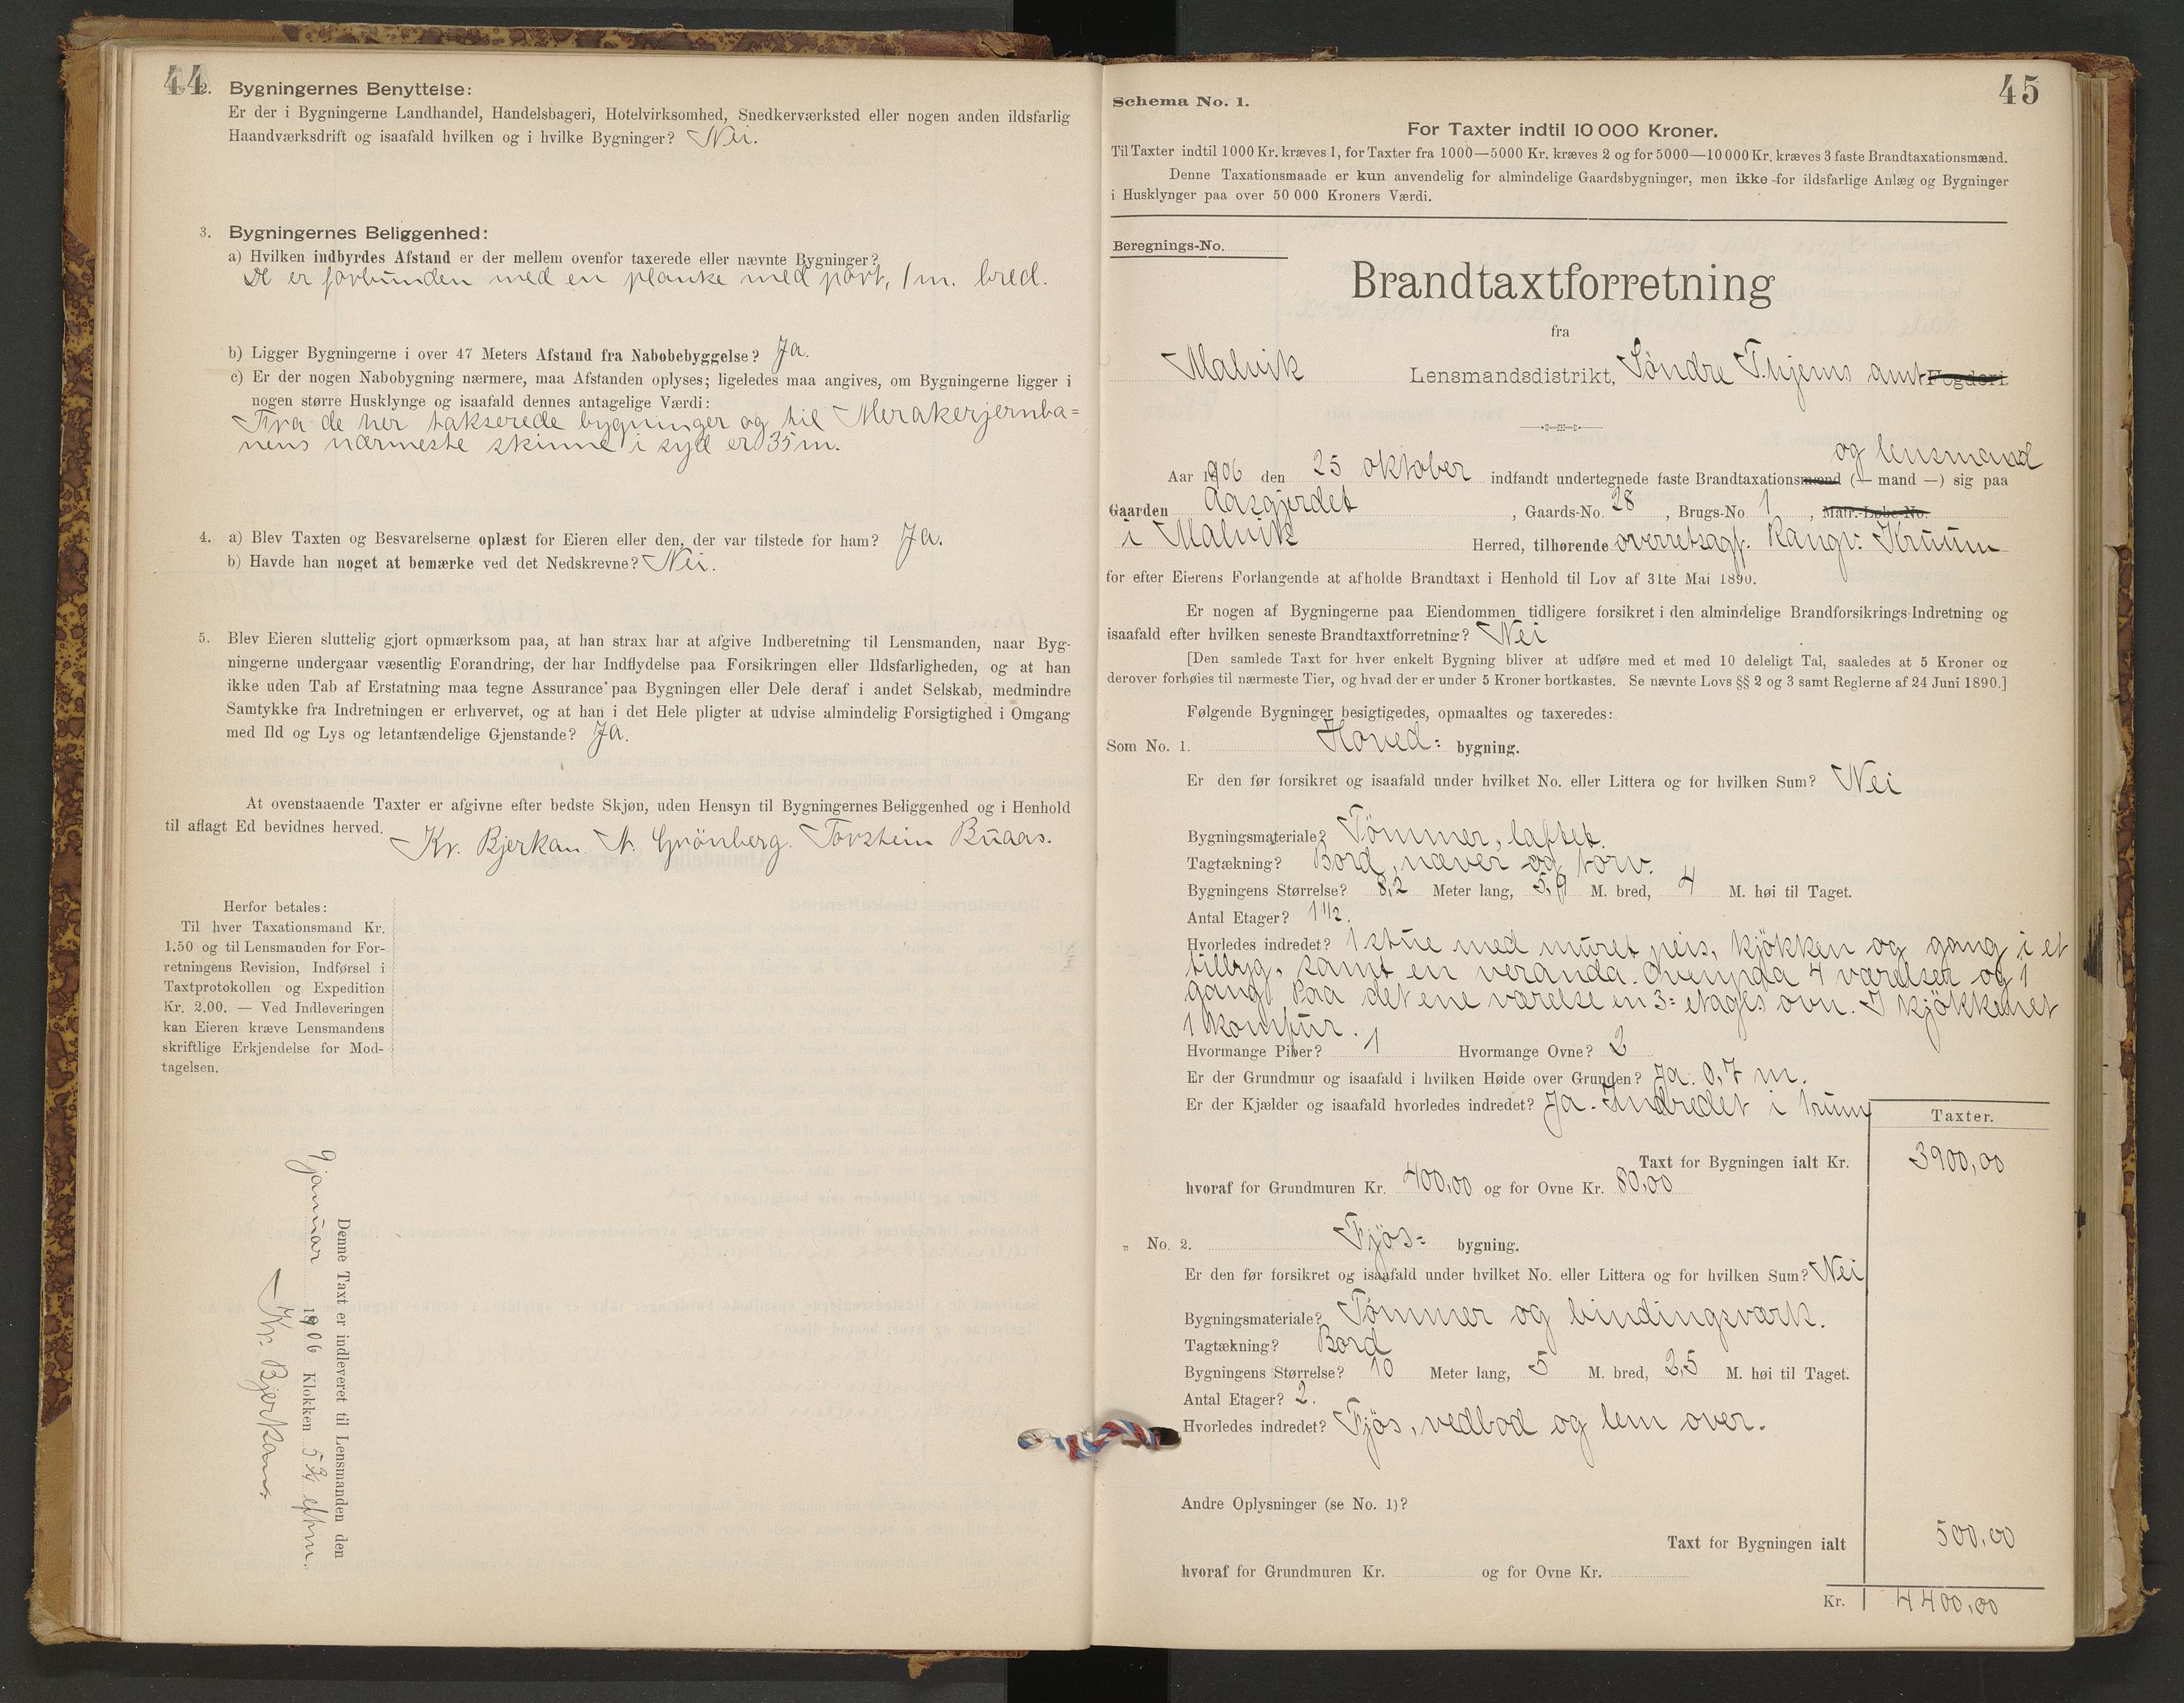 44
2. Bygningernes Benyttelse:
Er der i Bygningerne Landhandel, Handelsbageri, Hotelvirksomhed, Snedkerværksted eller nogen anden ildsfarlig
Haandværksdrift og isaafald hvilken og i hvilke Bygninger? Nei.
3. Bygningernes Beliggenhed:
a) Hvilken indbyrdes Afstand er der mellem ovenfor taxerede eller nævnte Bygninger?
De er forbunden med en planke med port, 1 m. bred.
b) Ligger Bygningerne i over 47 Meters Afstand fra Nabobebyggelse? Ja.
c) Er der nogen Nabobygning nærmere, maa Afstanden oplyses; ligeledes maa angives, om Bygningerne ligger i
nogen større Husklynge og isaafald dennes antagelige Værdi:
Fra de her takserede bygninger og til Merakerjernba=
nens nærmeste skinne i syd er 35 m.
4. a) Blev Taxten og Besvarelserne oplæst for Eieren eller den, der var tilstede for ham? Ja.
b) Havde han noget at bemærke ved det Nedskrevne? Nei.
5. Blev Eieren sluttelig gjort opmærksom paa, at han strax har at afgive Indberetning til Lensmanden, naar Byg-
ningerne undergaar væsentlig Forandring, der har Indflydelse paa Forsikringen eller Ildsfarligheden, og at han
ikke uden Tab af Erstatning maa tegne Assurance paa Bygningen eller Dele deraf i andet Selskab, medmindre
Samtykke fra Indretningen er erhvervet, og at han i det Hele pligter at udvise almindelig Forsigtighed i Omgang
med Ild og Lys og letantændelige Gjenstande? Ja.
At ovenstaaende Taxter er afgivne efter bedste Skjøn, uden Hensyn til Bygningernes Beliggenhed og i Henhold
til aflagt Ed bevidnes herved.
Kr. Bjerkan. N. Grönberg. Torstein Buaas.
Herfor betales:
Til hver Taxationsmand Kr.
1.50 og til Lensmanden for For-
retningens Revision, Indførsel i
Taxtprotokollen og Expedition
Kr. 2.00. — Ved Indleveringen
kan Eieren kræve Lensmandens
skriftlige Erkjendelse for Mod-
tagelsen.
Denne Taxt er indleveret til Lensmanden den
9 januar 1906 Klokken 5 3/4 eftm.
Kr. Bjerkan.
45
Schema No. 1.
For Taxter indtil 10 000 Kroner.
Til Taxter indtil 1000 Kr. kræves 1, for Taxter fra 1000—5000 Kr. kræves 2 og for 5000—10 000 Kr. kræves 3 faste Brandtaxationsmænd.
Denne Taxationsmaade er kun anvendelig for almindelige Gaardsbygninger, men ikke for ildsfarlige Anlæg og Bygninger
i Husklynger paa over 50 000 Kroners Værdi.
Beregnings-No.
Brandtaxtforretning
fra
Malvik Lensmandsdistrikt, Söndre T.hjems amt Fogderi
og lensmand
Aar 1906 den 25 oktober indfandt undertegnede faste Brandtaxationsmænd (— mand —) sig paa
Gaarden Aasgjerdet, Gaards-No. 28, Brugs-No 1, Matr.-Løbe-No.
i Malvik Herred, tilhørende overretsagf. Rangv. Kruum
for efter Eierens Forlangende at afholde Brandtaxt i Henhold til Lov af 31te Mai 1890.
Er nogen af Bygningerne paa Eiendommen tidligere forsikret i den almindelige Brandforsikrings-Indretning og
isaafald efter hvilken seneste Brandtaxtforretning? Nei
[Den samlede Taxt for hver enkelt Bygning bliver at udføre med et med 10 deleligt Tal, saaledes at 5 Kroner og
derover forhøies til nærmeste Tier, og hvad der er under 5 Kroner bortkastes. Se nævnte Lovs §§ 2 og 3 samt Reglerne af 24 Juni 1890.]
Følgende Bygninger besigtigedes, opmaaltes og taxeredes:
Som No. 1. Hoved= bygning.
Er den før forsikret og isaafald under hvilket No. eller Littera og for hvilken Sum? Nei
Bygningsmateriale? Tömmer, laftet.
Tagtækning? Bord, næver og torv.
Bygningens Størrelse? 8,2 Meter lang, 5,9 M. bred, 4 M. høi til Taget.
Antal Etager? 1 1/2.
Hvorledes indredet? 1 stue med muret peis, kjökken og gang i et
tilbyg, samt en veranda. Ovenpaa 4 værelser og 1
gang. Paa det ene værelse en 3= etages ovn. I kjökkenet
1 komfur.
Hvormange Piber? 1 Hvormange Ovne? 2
Er der Grundmur og isaafald i hvilken Høide over Grunden? Ja. 0,7 m.
Er der Kjælder og isaafald hvorledes indredet? Ja. Indredet i 1 rum
Taxter.
Taxt for Bygningen ialt Kr. 3900,00
hvoraf for Grundmuren Kr. 400,00 og for Ovne Kr. 80,00
„ No. 2. Fjös= bygning.
Er den før forsikret og isaafald under hvilket No. eller Littera og for hvilken Sum? Nei
Bygningsmateriale? Tömmer og bindingsværk.
Tagtækning? Bord
Bygningens Størrelse? 10 Meter lang, 5 M. bred, 2,5 M. høi til Taget.
Antal Etager? 2.
Hvorledes indredet? Fjös, vedbod og lem over.
Andre Oplysninger (se No. 1)?
Taxt for Bygningen ialt 500,00
hvoraf for Grundmuren Kr. og for Ovne Kr.
Kr. 4400,00